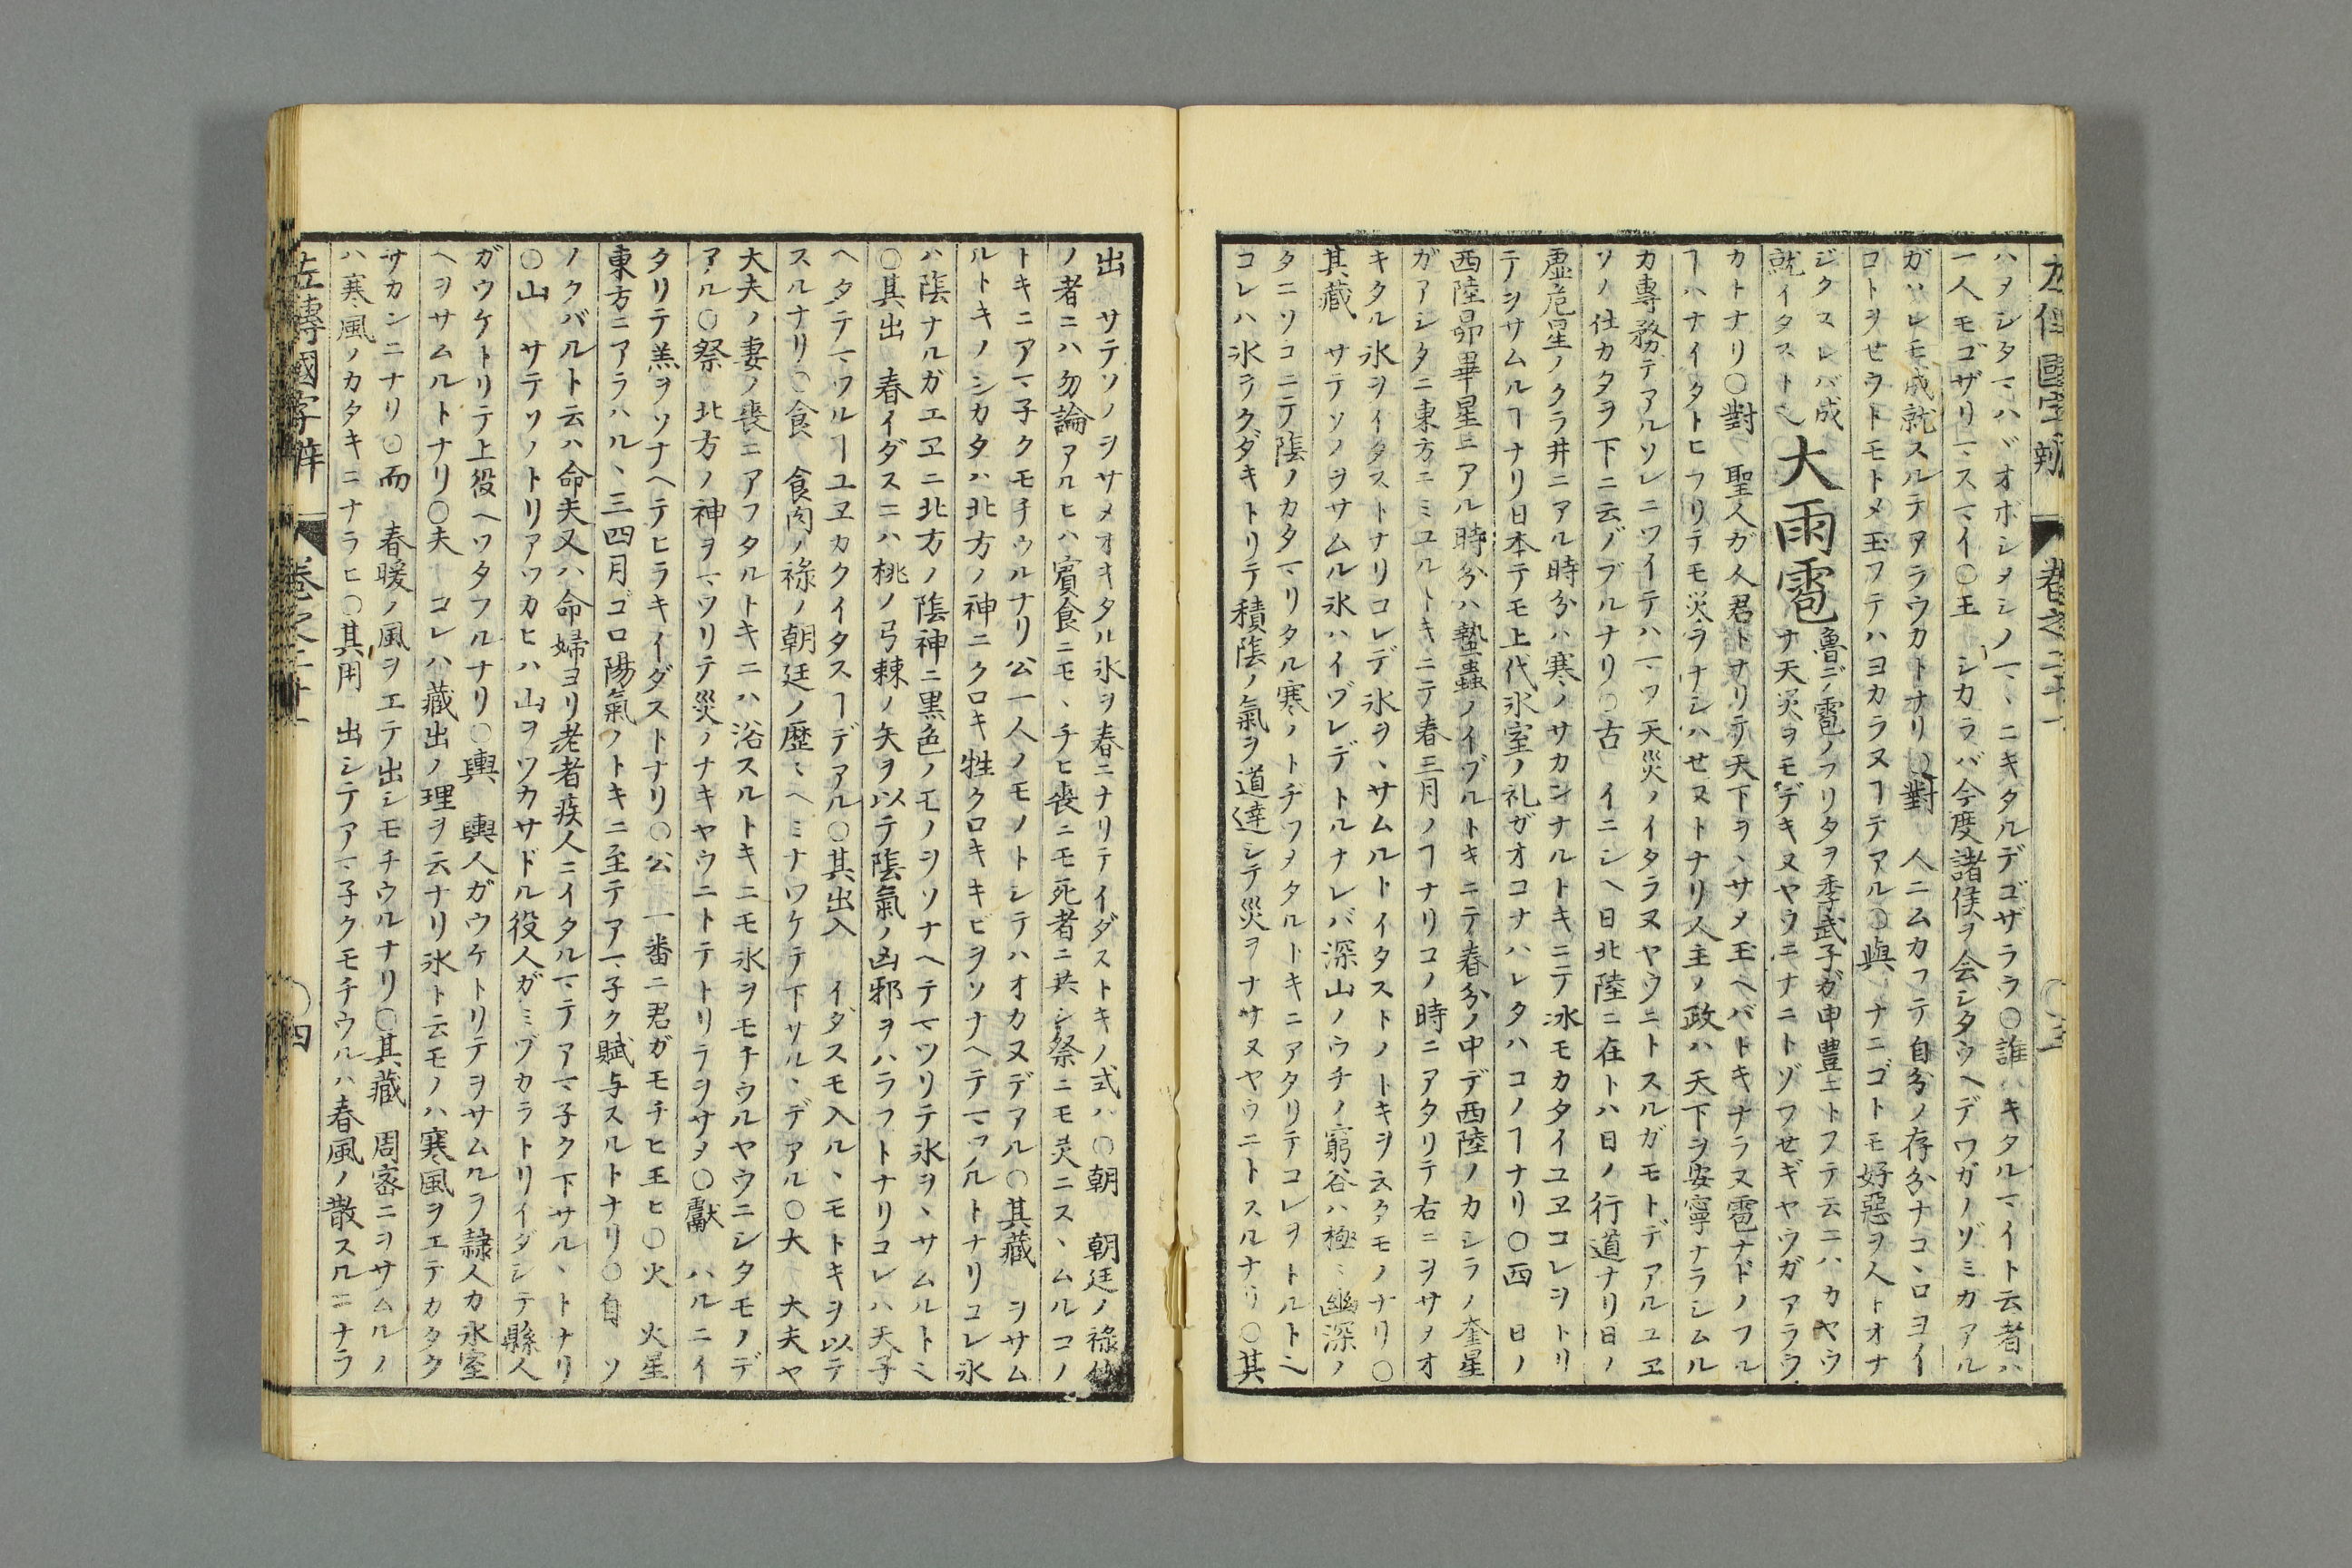 ハヲシタマハバオボシメシノマヽニキタルデゴザラフ〇誰ハキタルマイト云者ハ
一人モゴザリマスマイ〇王 シカラバ今度諸侯ヲ会シタウヘデワガノゾミカアル
ガハレモ成就スルテアラウカトナリ〇對 人ニムカフテ自分ノ存分ナコヽロヨイ
コトヲせウトモトメ玉フテハヨカラヌヿテアル〇與 ナニゴトモ好惡ヲ人トオナ
ジクスレバ成
就イタスト也
大雨雹
魯ニ雹ノフリタヲ季武子ガ申豊ニトフテ云ニハカヤウ
ナ天災ヲモデキヌヤウニナニトゾフせギヤウガアラウ
カトナリ〇對 聖人ガ人君トナリテ天下ヲヽサメ玉ヘバトキナラヌ雹ナドノフル
ヿハナイタトヒフリテモ災ヲナシハせヌトナリ人主ノ政ハ天下ヲ安寧ナラシムル
カ專務テアルソレニツイテハマヅ天災ノイタラヌヤウニトスルガモトデアルユヱ
ソノ仕カタヲ下ニ云ノブルナリ〇古 イニシヘ日北陸ニ在トハ日ノ行道ナリ日ノ
虚危星ノクラ井ニアル時分ハ寒ノサカンナルトキニテ氷モカタイユヱコレヲトリ
テヲサムルヿナリ日本テモ上代氷室ノ礼ガオコナハレタハコノヿナリ〇西 日ノ
西陸昴畢星ニアル時分ハ蟄蟲ノイヅルトキニテ春分ノ中デ西陸ノカシラノ奎星
ガアシタニ東方ニミユルトキニテ春三月ノヿナリコノ時ニアタリテ右ニヲサメオ
キタル氷ヲイタストナリコレデ氷ヲヽサムルトイタストノトキヲ云タモノナリ〇
其藏 サテソノヲサムル氷ハイヅレデトルナレバ深山ノウチノ窮谷ハ極ミ幽深ノ
タニソコニテ陰ノカタマリタル寒ノトヂフタルトキニアタリテコレヲトルト也
コレハ氷ヲクダキトリテ積陰ノ氣ヲ道達シテ災ヲナサヌヤウニトスルナリ〇其
出 サテソノヲサメオキタル氷ヲ春ニナリテイダストキノ式ハ〇朝 朝廷ノ祿位
ノ者ニハ勿論アルヒハ賓食ニモヽチヒ喪ニモ死者ニ共シ祭ニモ共ニスヽムルコノ
トキニアマ子クモチウルナリ公一人ノモノトシテハオカヌデアル〇其藏 ヲサム
ルトキノシカタハ北方ノ神ニクロキ牲クロキキビヲソナヘテマツルトナリコレ氷
ハ陰ナルガユヱニ北方ノ陰神ニ黒色ノモノヲソナヘテマツリテ氷ヲヽサムルト也
〇其出 春イダスニハ桃ノ弓棘ノ矢ヲ以テ陰氣ノ凶邪ヲハラフトナリコレハ天子
ヘタテマツルヿユヱカクイタスヿデアル〇其出入 イダスモ入ルヽモトキヲ以テ
スルナリ〇食 食肉ノ祿ノ朝廷ノ歴ミヘミナワケテ下サルヽデアル〇大 大夫ヤ
大夫ノ妻ノ喪ニアフタルトキニハ浴スルトキニモ氷ヲモチウルヤウニシタモノデ
アル〇祭 北方ノ神ヲマツリテ災ノナキヤウニトテトリヲサメ〇獻 ハルニイ
タリテ羔ヲソナヘテヒラキイダストナリ〇公 一番ニ君ガモチヒ玉ヒ〇火 火星
東方ニアラハルヽ三四月ゴロ陽氣ノトキニ至テアマ子ク賦与スルトナリ〇自 ソ
ノクバルト云ハ命夫又ハ命婦ヨリ老者疾人ニイタルマテアマ子ク下サルヽトナリ
〇山 サテソノトリアツカヒハ山ヲツカサドル役人ガミヅカラトリイダシテ縣人
ガウケトリテ上役ヘワタフルナリ〇輿 輿人ガウケトリテヲサムルヲ隷人カ氷室
ヘヲサムルトナリ〇夫 コレハ藏出ノ理ヲ云ナリ氷ト云モノハ寒風ヲエテカタク
サカンニナリ〇而 春暖ノ風ヲエテ出シモチウルナリ〇其藏 周密ニヲサムルノ
ハ寒風ノカタキニナラヒ〇其用 出シテアマ子クモチウルハ春風ノ散スルニナラ
左傳國字辯 卷之二十一 〇四